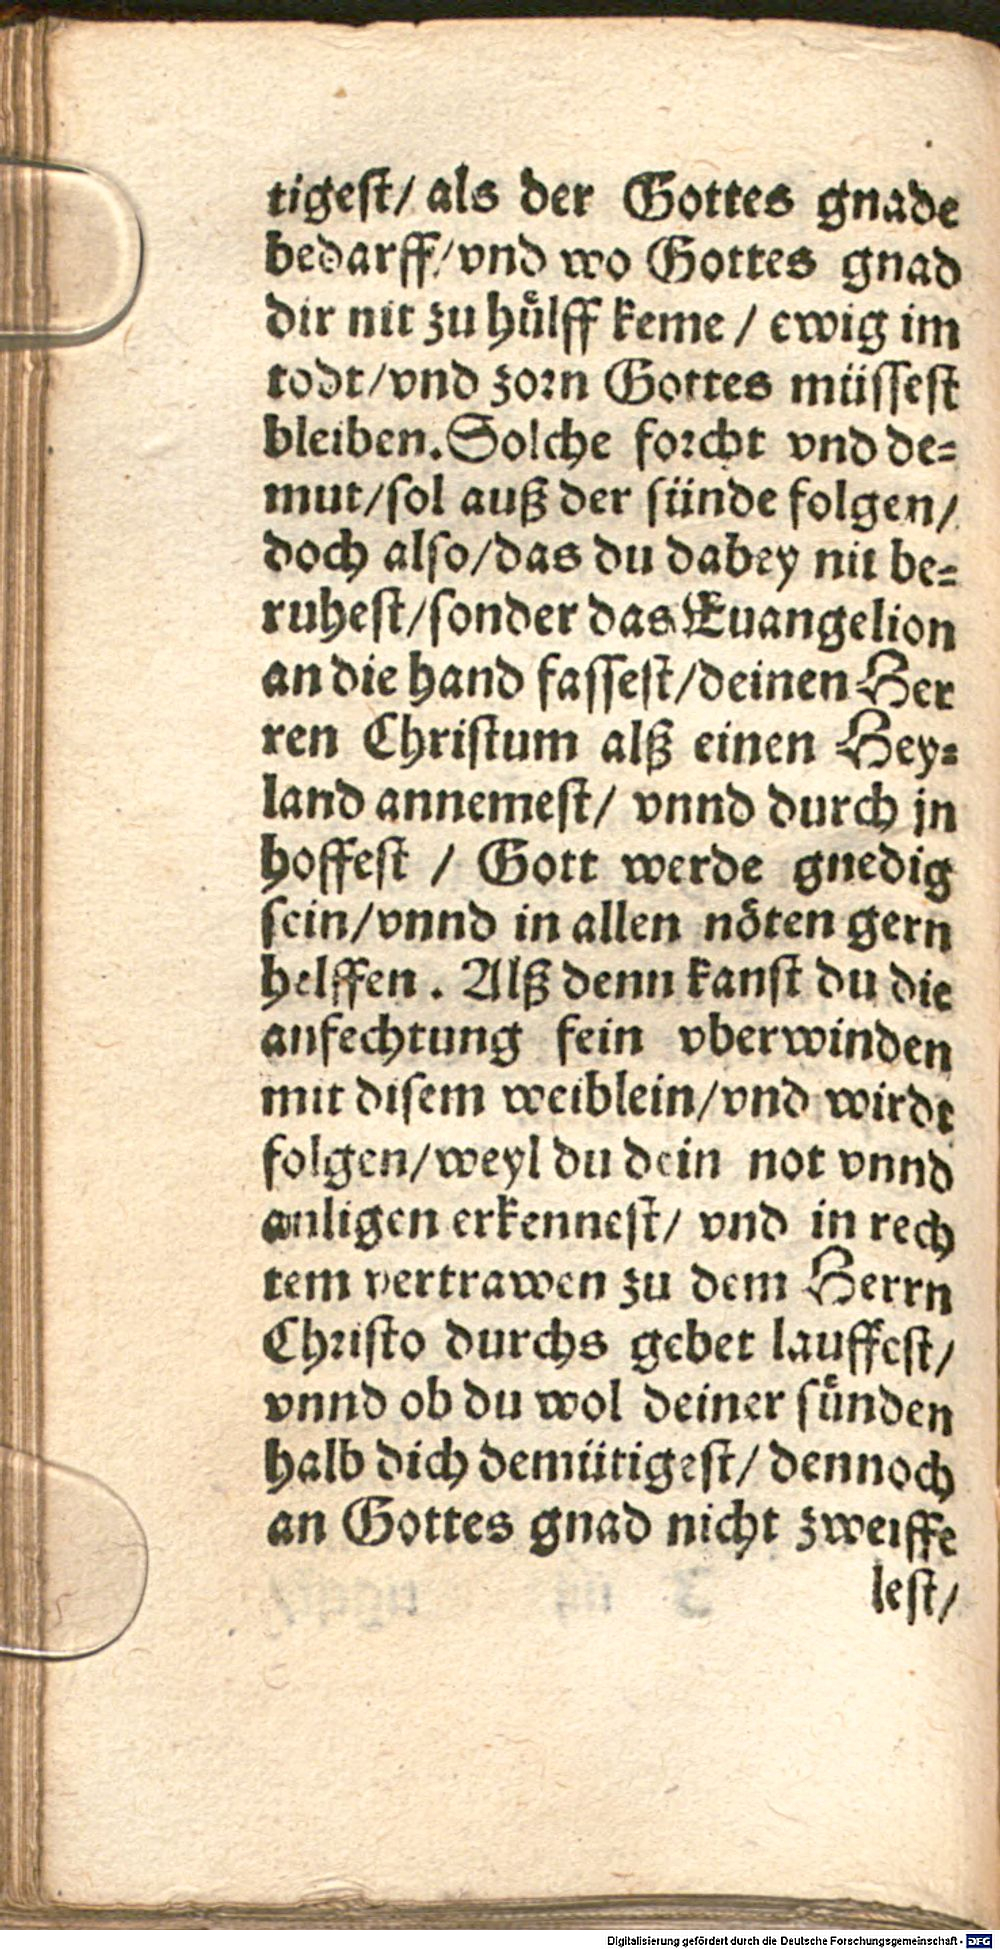 tigest/ als der Gottes gnade
bedarff/vnd wo Gottes gnad
dir nit zu huͤlff keme / ewig im
todt/vnd zorn Gottes müssest
bleiben. Solche forcht vnd de=
mut/sol auß der sünde folgen/
doch also/das du dabey nit be=
ruhest/sonder das Euangelion
an die hand fassest/deinen Her
ren Christum alß einen Hey=
land annemest/ vnnd durch jn
hoffest / Gott werde gnedig
sein/vnnd in allen nöten gern
helffen. Alß denn kanst du die
anfechtung fein vberwinden
mit disem weiblein/vnd wirdt
folgen/weyl du dein not vnnd
anligen erkennest/ vnd in rech
tem vertrawen zu dem Herrn
Christo durchs gebet lauffest/
vnnd ob du wol deiner suͤnden
halb dich demütigest/ dennoch
an Gottes gnad nicht zweiffe
lest/
Digitalisierung gefördert durch die Deutsche Forschungsgemeinschaft - DFG